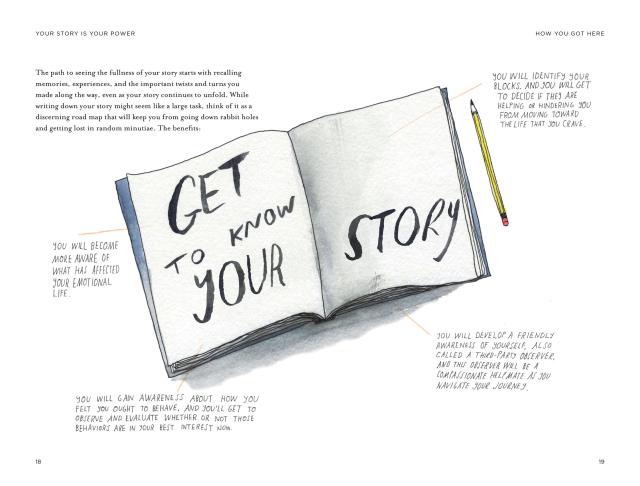 YOUR STORY IS YOUR POWER
HOW YOU GOT HERE
The path to seeing the fullness of your story starts with recalling
memories, experiences, and the important twists and turns you
made along the way, even as your story continues to unfold. While
writing down your story might seem like a large task, think of it as a
discerning road map that will keep you from going down rabbit holes
and getting lost in random minutiae. The benefits:
YOU WILL IDENTIFY YOUR
BLOCKS, AND YOU WILL GET
TO DECIDE IF THEY ARE
HELPING OR HINDERING YOU
FROM MOVING TOWARD
THE LIFE THAT YOU CRAVE.
GET
TO KNOW
YOUR
STORY
YOU WILL BECOME
MORE AWARE OF
WHAT HAS AFFECTED
YOUR EMOTIONAL
LIFE.
YOU WILL DEVELOP A FRIENDLY
AWARENESS OF YOURSELF, ALSO
CALLED A THIRD-PARTY OBSERVER,
AND THIS OBSERVER WILL BE A
COMPASSIONATE HELPMATE AS YOU
NAVIGATE YOUR JOURNEY.
YOU WILL GAIN AWARENESS ABOUT HOW YOU
FELT YOU OUGHT TO BEHAVE, AND YOU'LL GET TO
OBSERVE AND EVALUATE WHETHER OR NOT THOSE
BEHAVIORS ARE IN YOUR BEST INTEREST NOW.
18
19